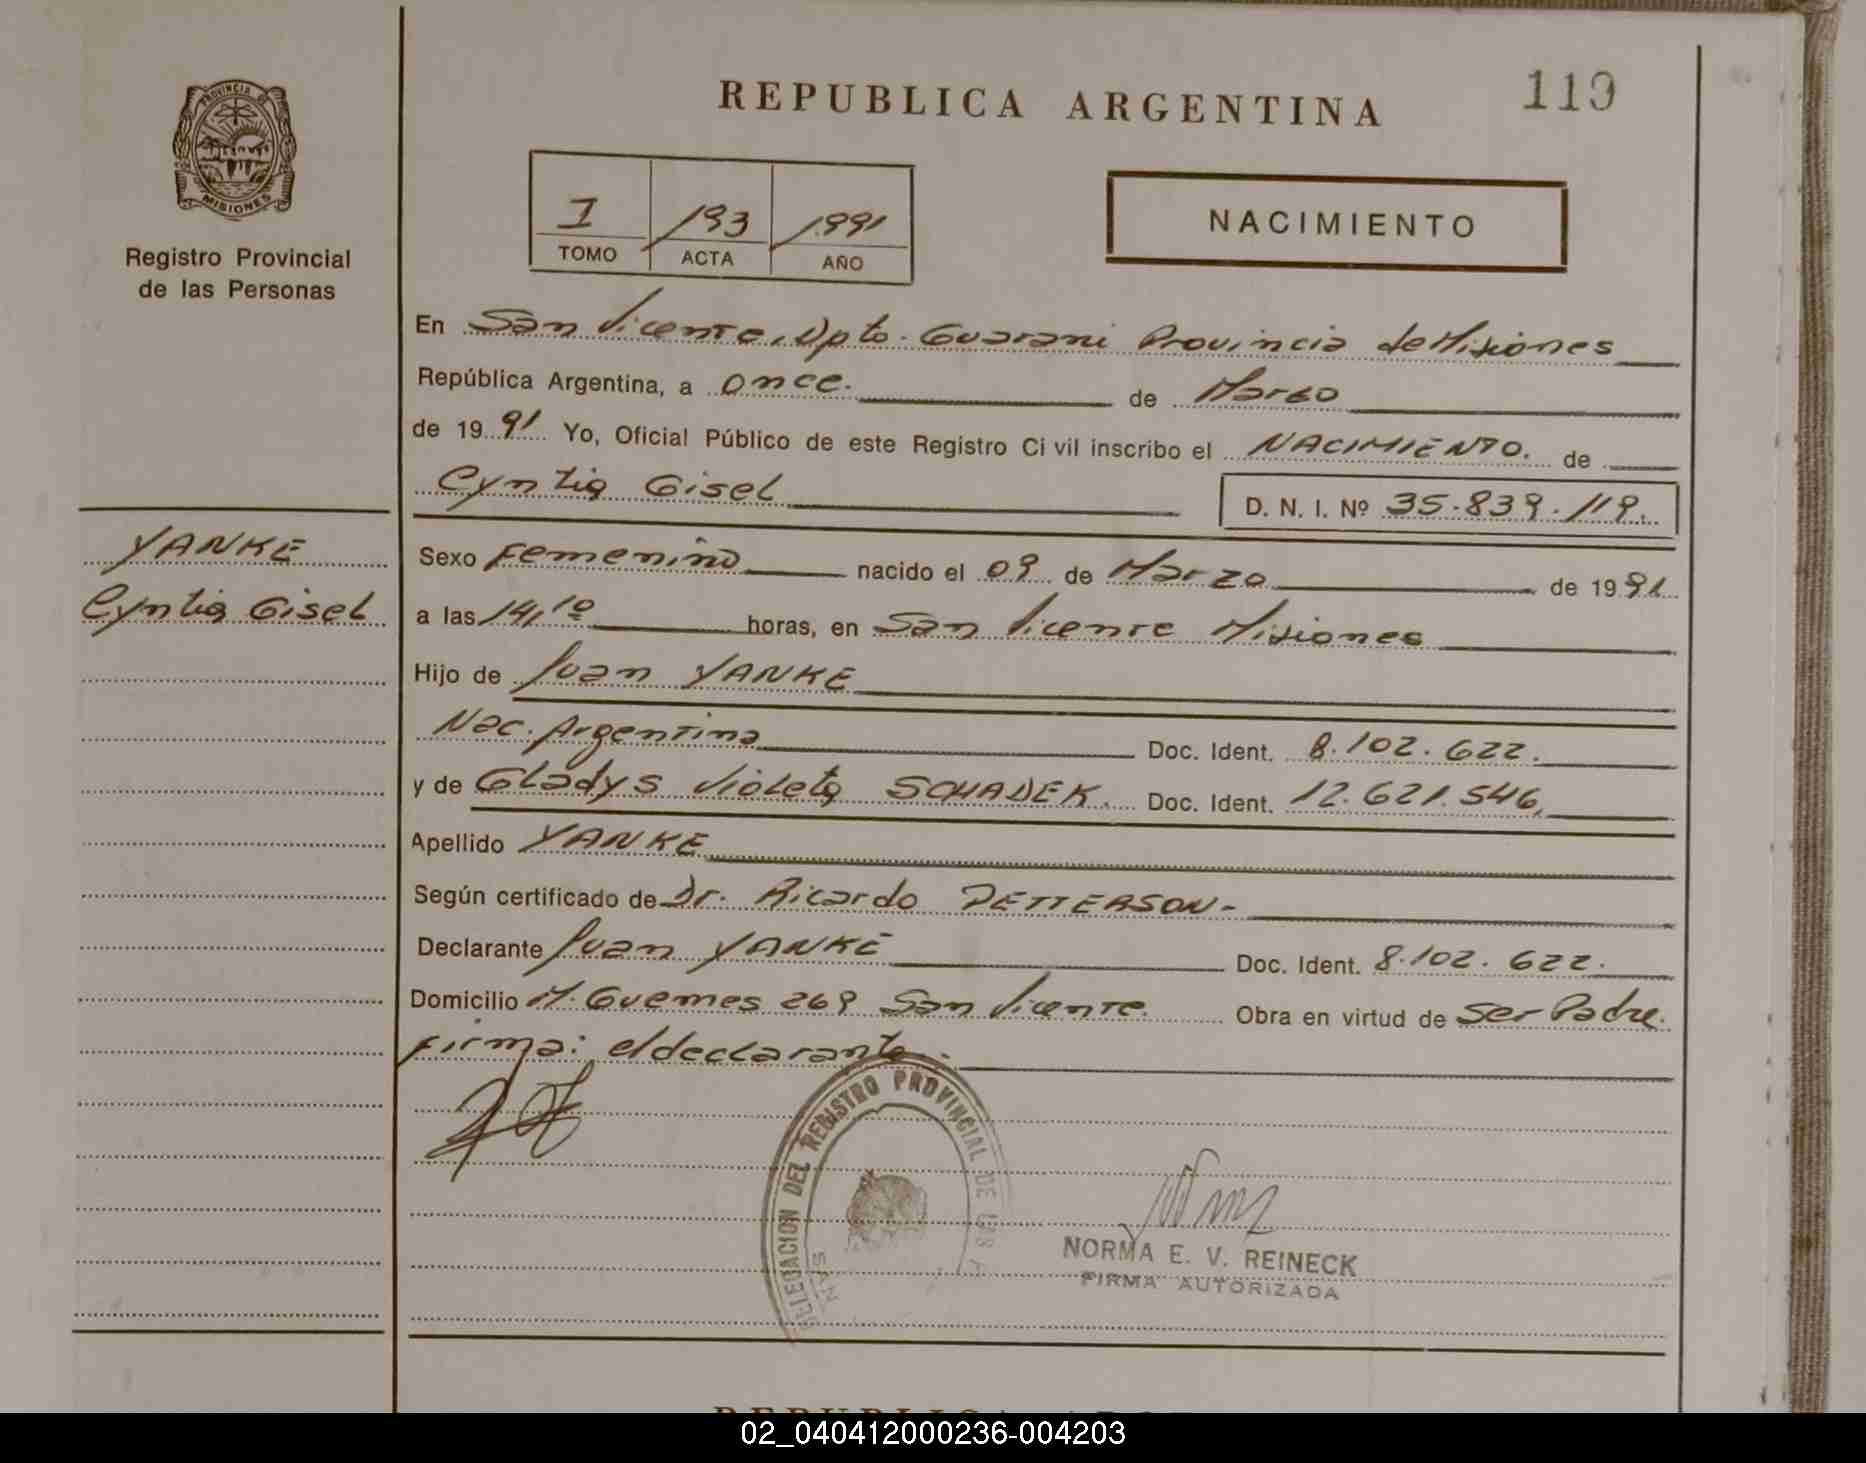 REPUBLICA ARGENTINA
119
PROVINCIA DE
MISIONES
Registro Provincial
de las Personas
I
TOMO
193
ACTA
1991
AÑO
NACIMIENTO
En San Vicente, Dpto. Guarani Provincia de Misiones
República Argentina, a once. de Marzo
de 1991 Yo, Oficial Público de este Registro Ci vil inscribo el NACIMIENTO. de
Cyntia Gisel
D. N. I. Nº 35.839.119.
YANKE
Cyntia Gisel
Sexo Femenino nacido el 09 de Marzo de 1991
a las 14,10 horas, en San Vicente Misiones
Hijo de Juan YANKE
Nac. Argentina Doc. Ident. 8.102.622.
y de Gladys Violeta SCHADEK. Doc. Ident. 12.621.546,
Apellido YANKE
Según certificado de Dr. Ricardo PETTERSON-
Declarante Juan YANKE Doc. Ident. 8.102.622.
Domicilio M. Guemes 269 San Vicente. Obra en virtud de Ser Padre.
Firma: el declarante.
DELEGACION DEL REGISTRO PROVINCIAL DE LAS P
SAN
NORMA E. V. REINECK
FIRMA AUTORIZADA
02_040412000236-004203